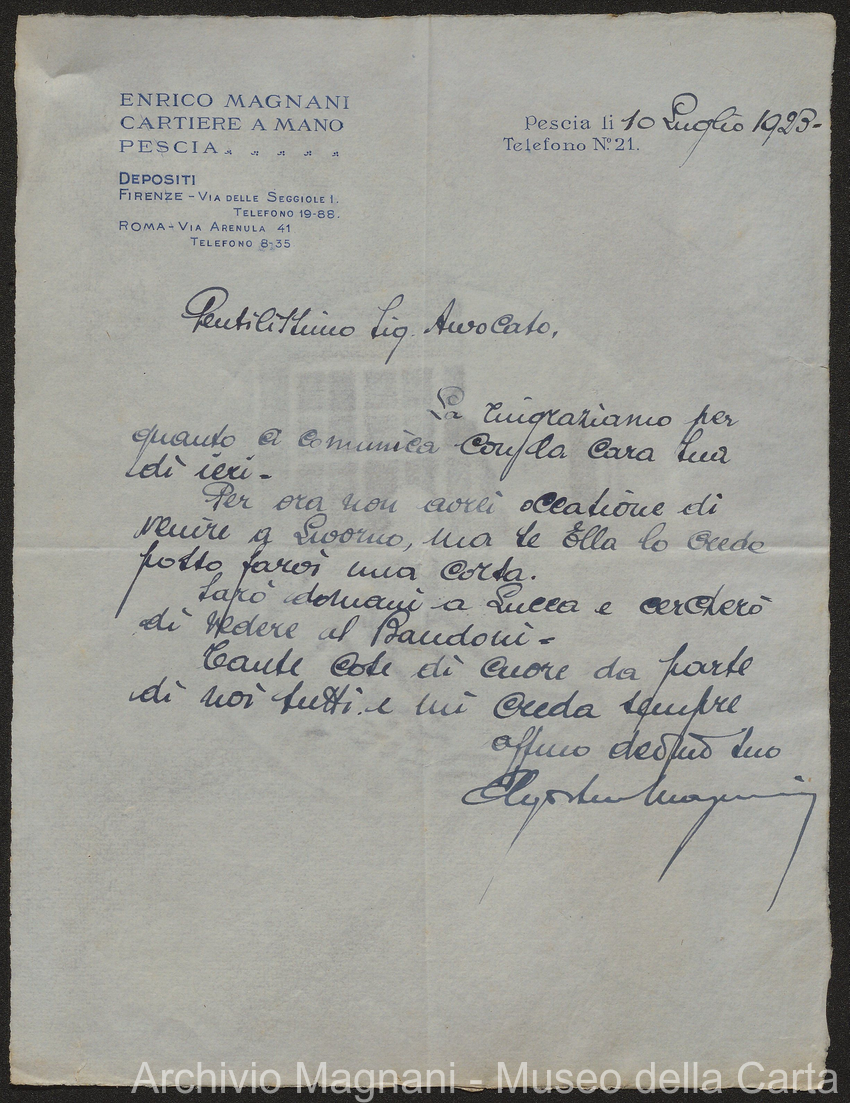 ENRICO MAGNANI
CARTIERE A MANO
PESCIA
DEPOSITI
FIRENZE - VIA DELLE SEGGIOLE 1.
TELEFONO 19-88.
ROMA - VIA ARENULA 41
TELEFONO 8-35
Pescia li 10 Luglio 1923-
Telefono N.º 21.
Gentilissimo Sig. Avvocato,
La ringraziamo per
quanto ci comunica con la cara sua
di ieri -
Per ora non avrei occasione di
venire a Livorno, ma se Ella lo crede
posso farvi una corsa.
Sarò domani a Lucca e cercherò
di vedere il Bandoni -
Tante cose di cuore da parte
di noi tutti e mi creda sempre
affmo devmo suo
Magnani
Archivio Magnani - Museo della Carta